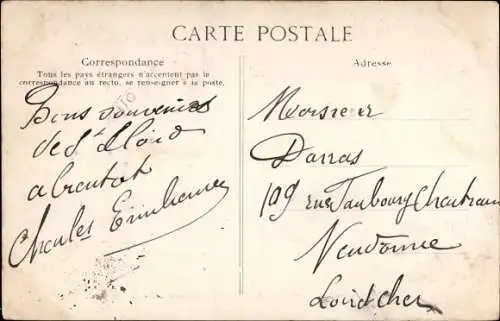 CARTE POSTALE
Correspondance
Tous les pays étrangers n'acceptent pas la
correspondance au recto, se renseigner à la poste.
Adresse
Bons souvenirs
de St
a bientot
Charles
Monsieur
Darras
109 rue Faubourg Chartrain
Vendome
Loir et Cher